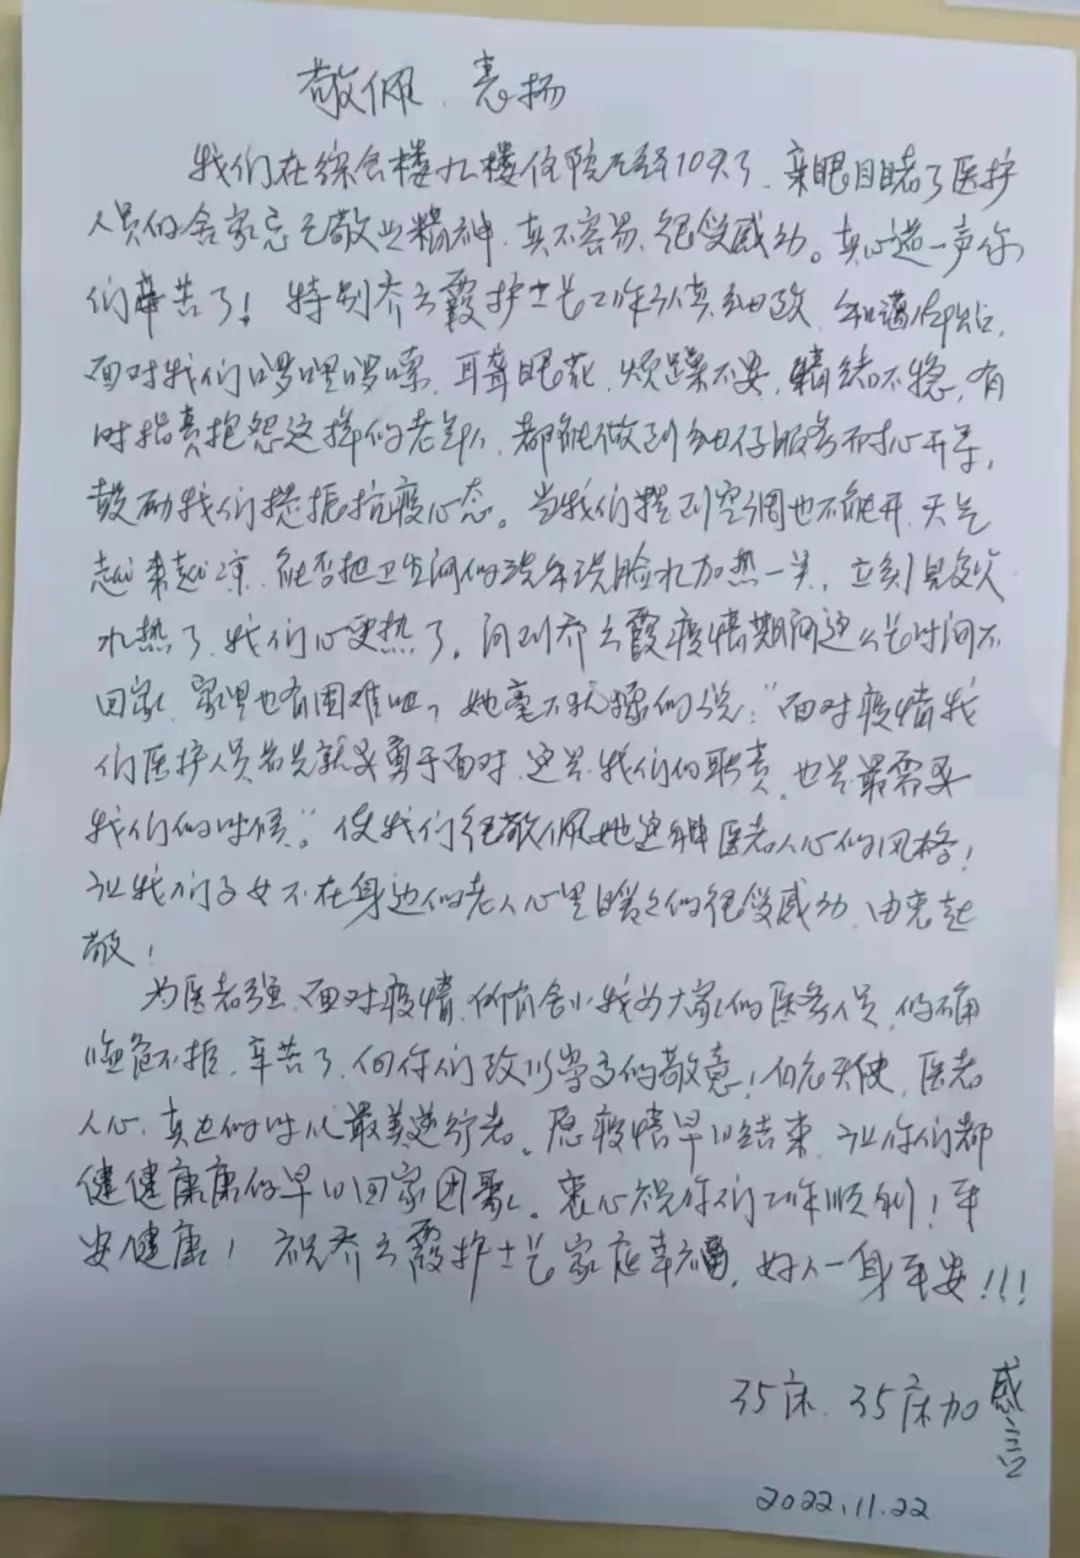 敬佩、表扬
我们在综合楼九楼住院已经10天了、亲眼目睹了医护
人员的舍家忘己敬业精神、真不容易、很受感动。真心道一声你
们辛苦了！特别乔云霞护士长工作认真、细致、和蔼
面对我们啰哩啰嗦、耳聋眼花、烦躁不安、情绪不稳、有
时指责抱怨这样的老年人、都能做到细仔服务耐心开导，
鼓励我们提振抗疫心态。当我们提到空调也不能开、天气
越来越凉、能否把卫生间的洗手洗脸水加热一点，立刻见效
水热了、我们心更热了。问到乔云霞疫情期间这么长时间不
回家、家里也有困难吧，她毫不犹豫的说：“面对疫情我
们医护人员首先就要勇于面对、这是我们的职责、也是最需要
我们的时候。”使我们很敬佩她这种医者人心的风格！
让我们子女不在身边的老人心里暖暖的很受感动、由衷起
敬！
为医者强、面对疫情、所有舍小我为大家的医务人员、的确
临危不拒、辛苦了、向你们致以崇高的敬意！白衣天使、医者
人心、真正的时代最美逆行者。愿疫情早日结束、让你们都
健健康康的早日回家团聚。衷心祝你们工作顺利！平
安健康！祝乔云霞护士长家庭幸福，好人一身平安！！！
35床、35床加 感言
2022.11.22